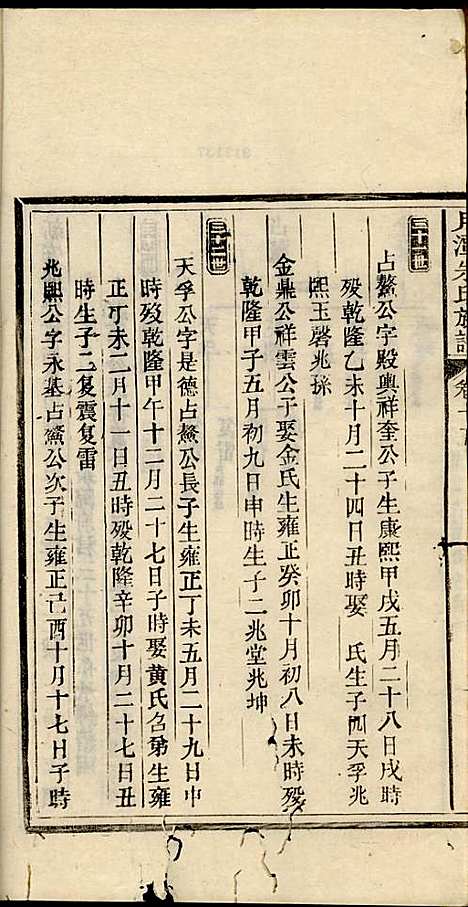 氏族譜
卷十
三十一世
占鰲公字殿輿祥奎公子生康熙甲戌五月二十八日戌時
歿乾隆乙未十月二十四日丑時娶 氏生子四天孚兆
熙玉磬兆孫
金鼎公祥雲公子娶金氏生雍正癸卯十月初八日未時歿
乾隆甲子五月初九日申時生子二兆堂兆坤
三十二世
天孚公字是德占鰲公長子生雍正丁未五月二十九日申
時歿乾隆甲午十二月二十七日子時娶黄氏名第生雍
正丁未二月十一日丑時歿乾隆辛卯十月二十七日丑
時生子二复震复雷
兆熙公字永基占鰲公次子生雍正己酉十月十七日子時